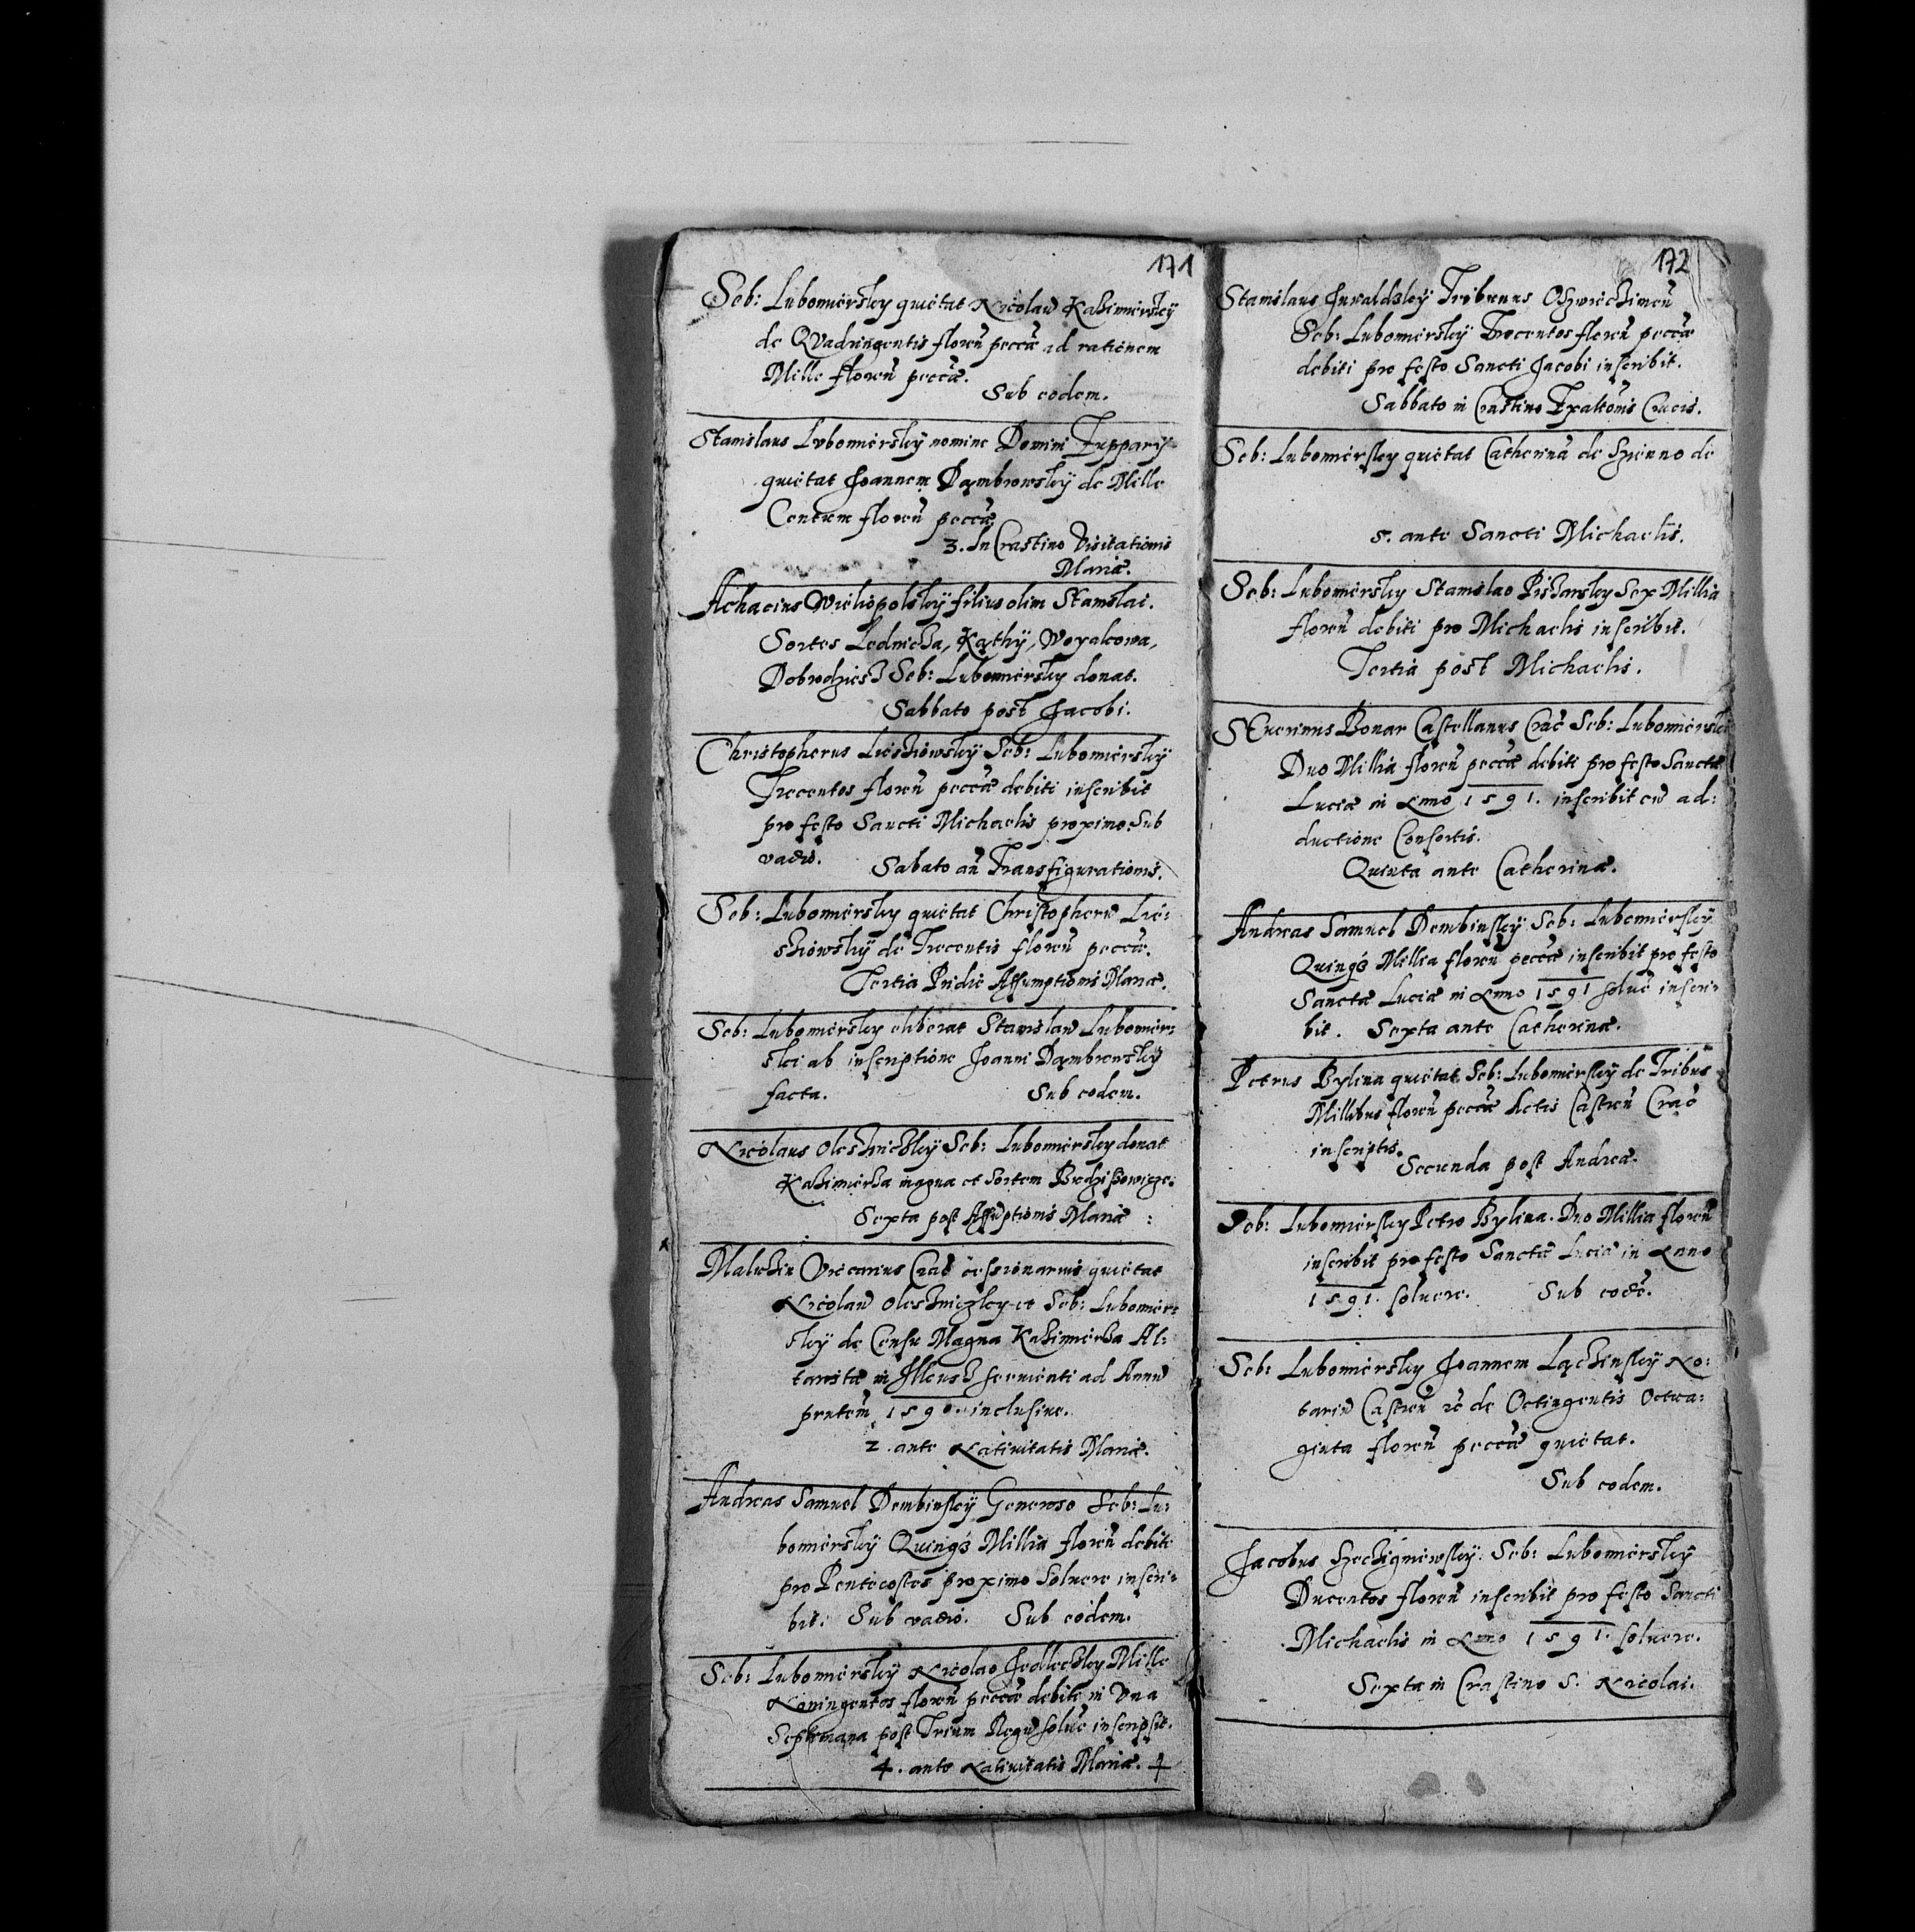 171
Seb: Lubomiersky quietat Nicolaũ Kazimiersky
de QVadringentis floreñ peccæ ad rationem
Mille floreñ peccæ.
Sub eodem.
Stanislaus Lvbomiersky nomine Domini Zuppary
quietat Joannem Dąmbrowsky de Mille
Centum floreñ peccæ
3. In Crastino Visitationis
Mariæ.
Achacius Wielopolsky filius olim Stanislai.
Sortes Lednicza, Kąthy, Woyakowa,
Dobrodziesz Seb: Lubomiersky donat.
Sabbato post Jacobi.
Christophorus Liesziowsky Seb: Lubomiersky
Trecentos floreñ peccæ debiti inscribit
pro festo Sancti Michaelis proximo Sub
vadio. Sabato añ Transfigurationis.
Seb: Lubomiersky quietat Christopherũ Lie:
sziowsky de Trecentis floreñ peccæ.
Tertia Pridie Assumptionis Mariæ.
Seb: Lubomiersky eliberat Stanislaũ Lubomier:
skei ab inscriptione Joanni Dąmbrowsky
facta. Sub eodem.
Nicolaus Oleśnicky Seb: Lubomiersky donat
Kazimierza magna et Sortem
Sexta post Assũptionis Mariæ :
Vicarius Crać cessionarius quietat
Nicolaũ et Seb: Lubomier:
sky de Censu Magna Kazimierza Al:
taristæ in Ilkusz servienti ad Annũ
pñtem 1590. inclusive.
2. ante Nativitatis Mariæ.
Andreas Samuel Dembinsky Generoso Seb: Lu:
bomiersky Quinqȝ Millia floreñ debiti
pro Pentecostes proximo Solvere inscri:
bit: Sub vadio. Sub eodem.
Seb: Lubomiersky Nicolao Jedleczky Mille
Noningentos floreñ peccæ debiti in Vna
Septimana post Trium Regũ solve inscripsit.
4. ante Nativitatis Mariæ.
172
Stanislaus Inwaldsky Tribunus Oszwieczimeñ
Seb: Lubomiersky Trecentos floreñ peccæ
debiti pro festo Sancti Jacobi inscribit.
Sabbato in Crastino Exaltõnis Crucis.
Seb: Lubomiersky quietat Catherinã de Szienno de
5. ante Sancti Michaelis.
Seb: Lubomiersky Stanislao Sex Millia
floreñ debiti pro Michaelis inscribit.
Tertia post Michaelis.
SEverinus Bonar Castellanus Crać Seb: Lubomierskei
Duo Millia floreñ peccæ debiti pro festo Sanctæ
Luciæ in Anno 1591. inscribit cũ ad:
ductione Consortis.
Quinta ante Catherinæ.
Andreas Samuel Dembinsky Seb: Lubomiersky
Quinqȝ Millia floreñ peccæ inscribit pro festo
Sanctæ Luciæ in Anno 1591 solve inscri:
bit. Sexta ante Catherinæ.
Petrus Bylina quietat Seb: Lubomiersky de Tribus
Millibus floreñ peccæ Actis Castreñ Crać
inscriptis.
Secunda post Andreæ.
Seb: Lubomiersky Petro Bylina. Duo Millia floreñ
inscribit pro festo Sanctæ Luciæ in Anno
1591. solvere. Sub eodẽ.
Seb: Lubomiersky Joannem Lączinsky No:
tariũ Castreñ de Octingentis Octua:
ginta floreñ peccæ quietat.
Sub eodem.
Jacobus Seb: Lubomiersky
Ducentos floreñ inscribit pro festo Sancti
Michaelis in Anno 1591. solvere.
Sexta in Crastino S. Nicolai.